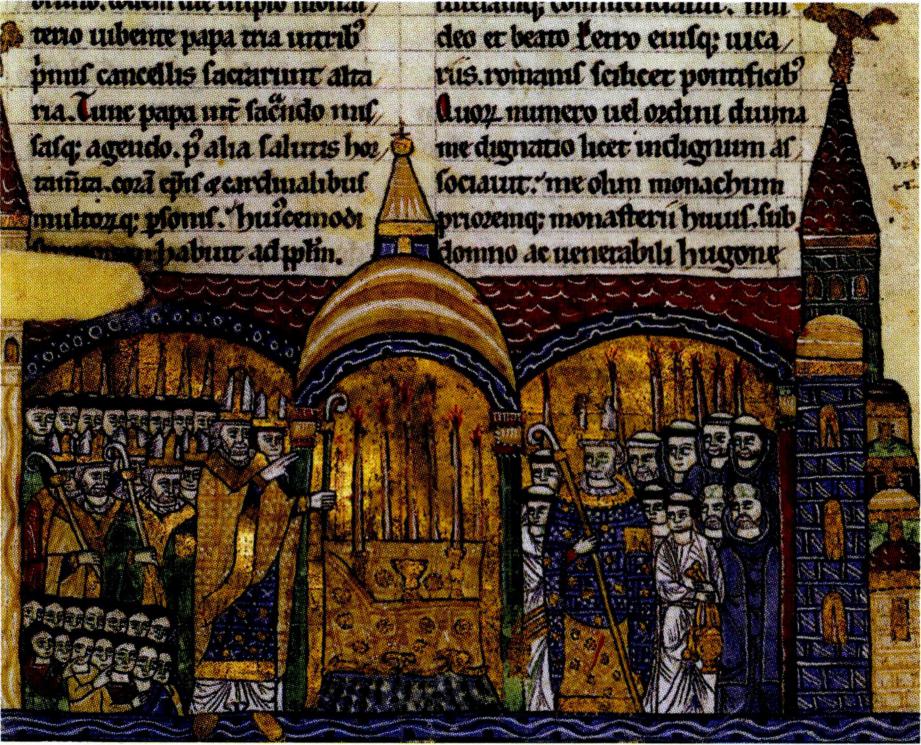 terio iubente papa tria in trib'
primis cancellis sacrarunt alta
ria. Tunc papa int sacrãdo mis
sasq; agendo. p' alia salutis hor
tam̃ta. corã ep̃is & cardinalibus
multorq; psonis. huicemodi
habuit ad pplm̃.
deo et beato Petro eiusq; uica
riis. romanis scilicet pontificib'
Quoꝝ numero uel ordini diuina
me dignatio licet indignum as
sociauit. me olim monachum
prioremq; monasterii huius. sub
domno ac uenerabili hugone